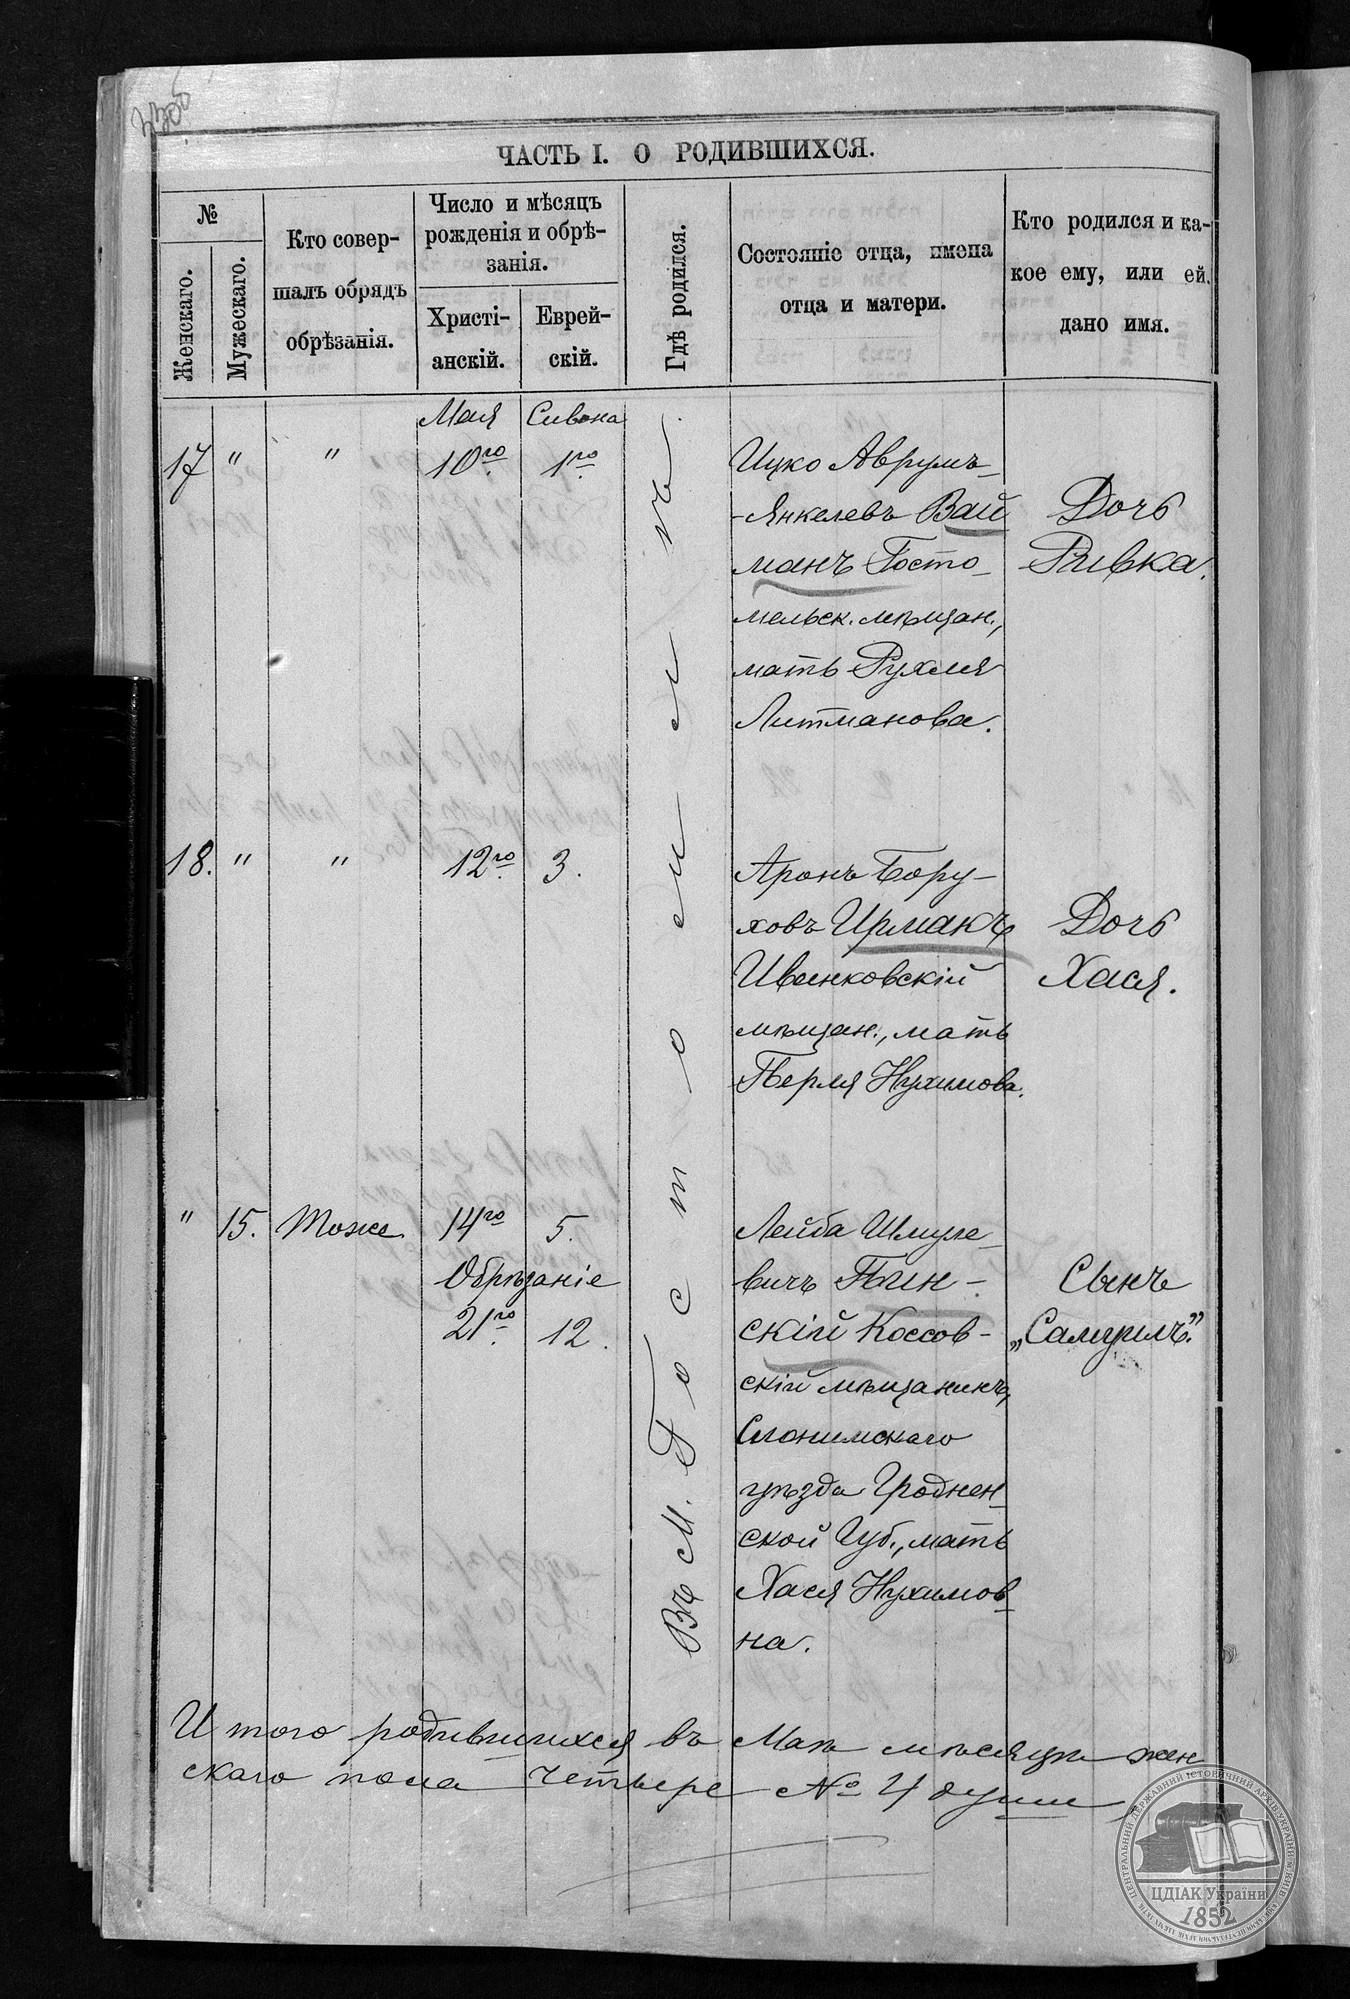 ЧАСТЬ I. О РОДИВШИХСЯ.
№
Женскаго.
Мужескаго.
Кто совер-
шалъ обрядъ
обрѣзанія.
Число и мѣсяцъ
рожденія и обрѣ-
занія.
Христі-
анскій.
Еврей-
скій.
Гдѣ родился.
Состояніе отца, имена
отца и матери.
Кто родился и ка-
кое ему, или ей.
дано имя.
Мая Сивона
17 " " 10го 1го
Ицко Аврумъ-
-Янкелевъ Вай
манъ Госто-
мельск. мѣщан.,
мать Рухля
Литманова.
Дочь
Ривка.
18. " " 12го 3.
Аронъ Бору-
ховъ Ирмакъ
Ивенковскій
мѣщан., мать
Перля Нухимова.
Дочь
Хася.
" 15. Тоже 14го 5.
Обрѣзаніе
21го 12.
Лейба Шмуле-
вичъ Пин-
скій Коссов-
скій мѣщанинъ,
Слонимскаго
уѣзда Гроднен-
ской Губ., мать
Хася Нухимов-
на.
Сынъ
„Самуилъ”.
Въ М. Гостомилѣ.
Итого родившихся въ Маѣ мѣсяцѣ жен
скаго пола четыре № 4 души
ЦЕНТРАЛЬНИЙ ДЕРЖАВНИЙ ІСТОРИЧНИЙ АРХІВ УКРАЇНИ М. КИЇВ
ЦДІАК України
1852